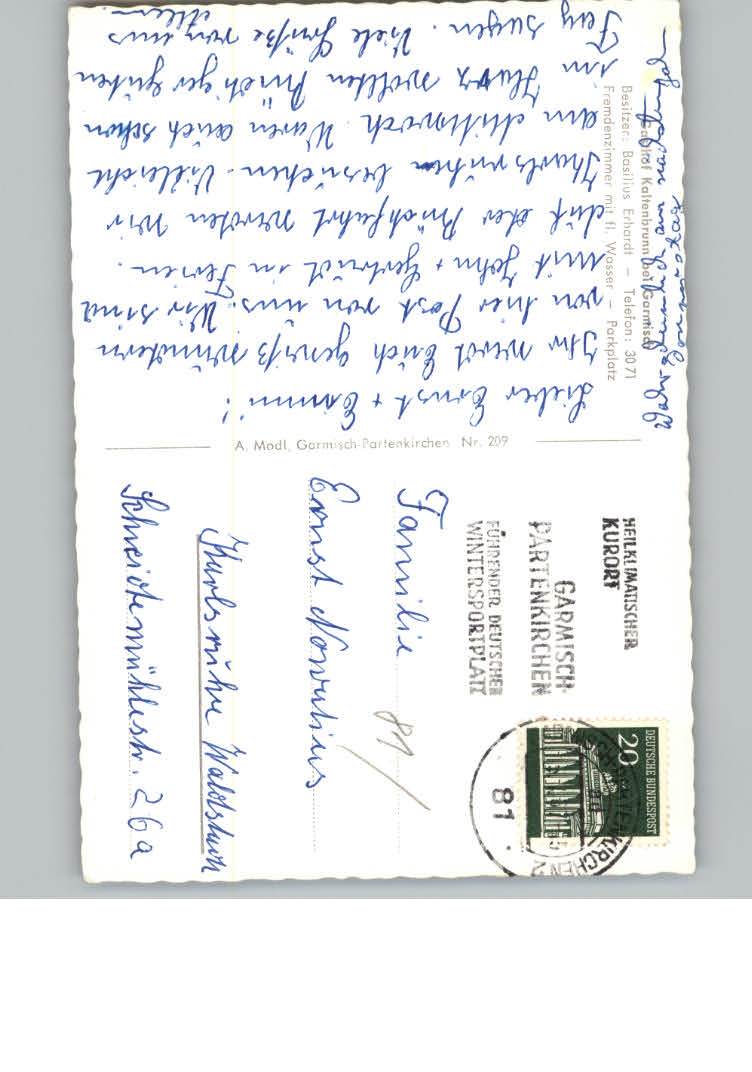 Gasthof Kaltenbrunn bei Garmisch
Besitzer: Basilius Erhardt – Telefon: 3071
Fremdenzimmer mit fl. Wasser – Parkplatz
Lieber Ernst + Emmi!
Ihr werdt Euch gewiß wundern
von hier Post von uns. Wir sind
mit John + Gertrud in Ferien.
Auf der Rückfahrt werden wir
Karlsruhe besuchen. Vileicht
am Mittwoch. Waren auch schon
im Harz wollten Euch ger guten
Tag sagen. Viele Grüße von uns
allen.
am nächsten
Donnerstag
A. Modl, Garmisch-Partenkirchen Nr. 209
HEILKLIMATISCHER
KURORT
GARMISCH-
PARTENKIRCHEN
FÜHRENDER DEUTSCHER
WINTERSPORTPLATZ
DEUTSCHE BUNDESPOST
20
81
Familie
Ernst
81
Karlsruhe Waldstadt
26a